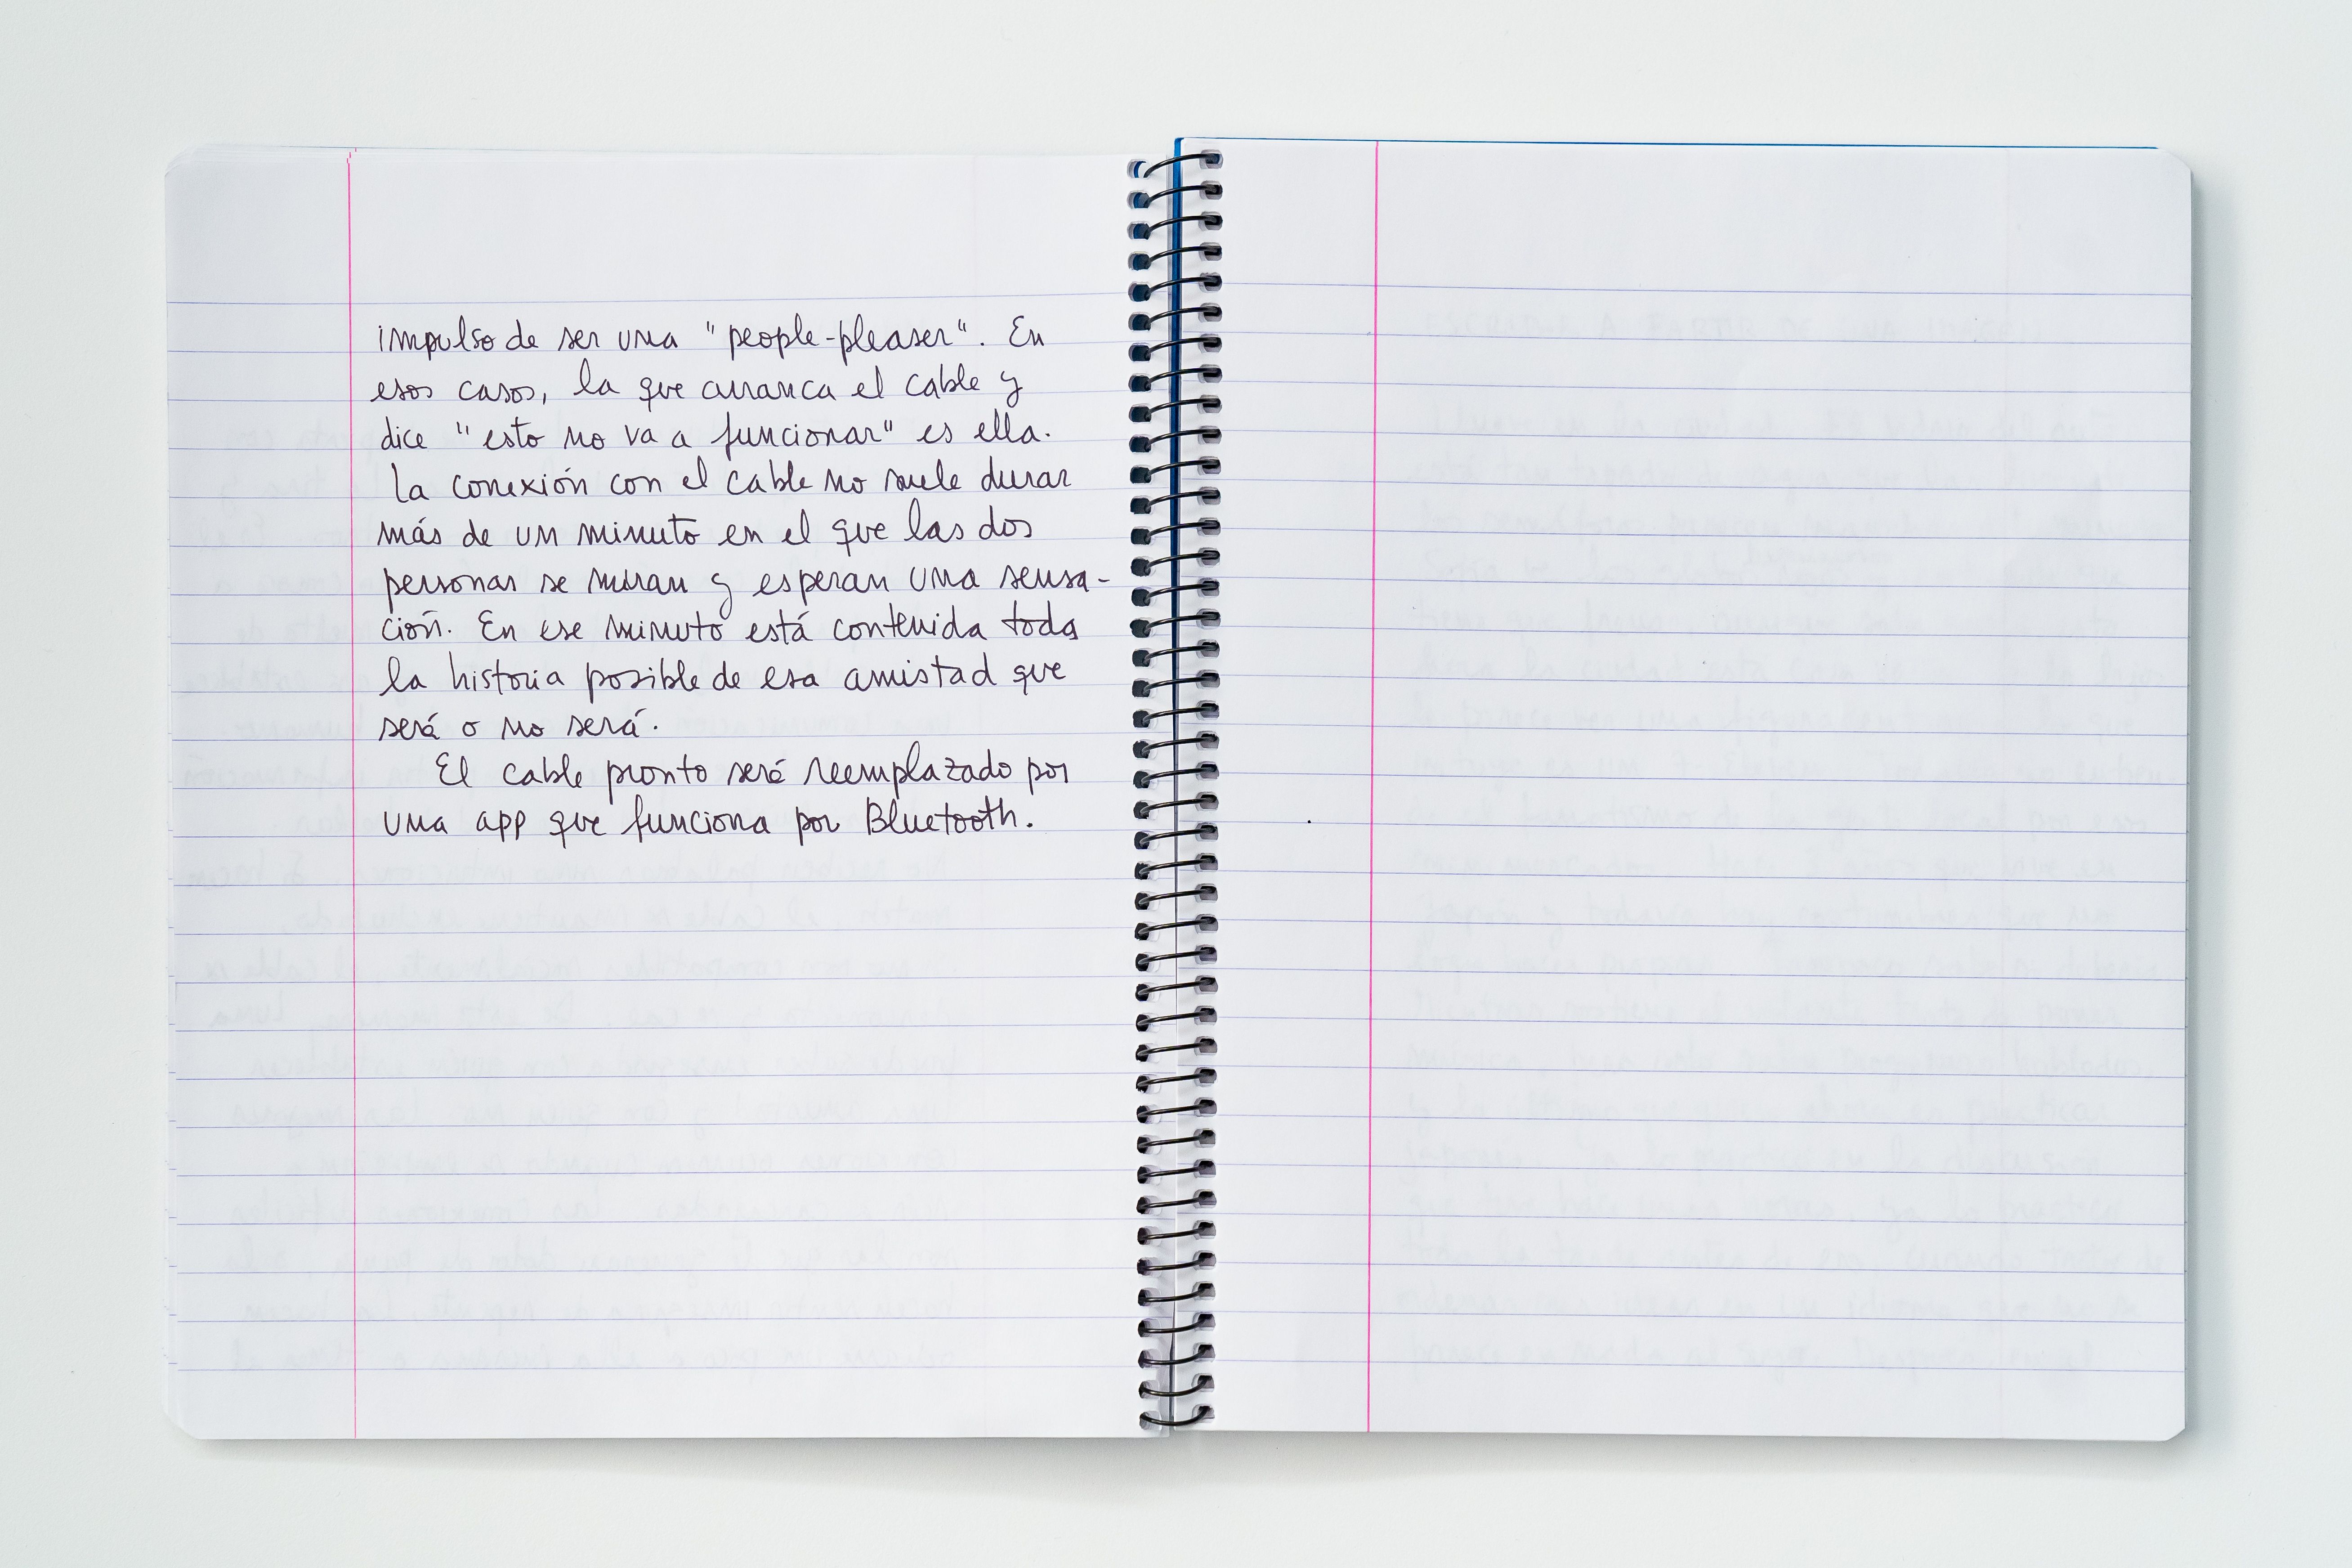 impulso de ser una "people-pleaser". En
esos casos, la que arranca el cable y
dice "esto no va a funcionar" es ella.
La conexión con el cable no suele durar
más de un minuto en el que las dos
personas se miran y esperan una sensa-
ción. En ese minuto está contenida toda
la historia posible de esa amistad que
será o no será.
El cable pronto será reemplazado por
una app que funciona por Bluetooth.